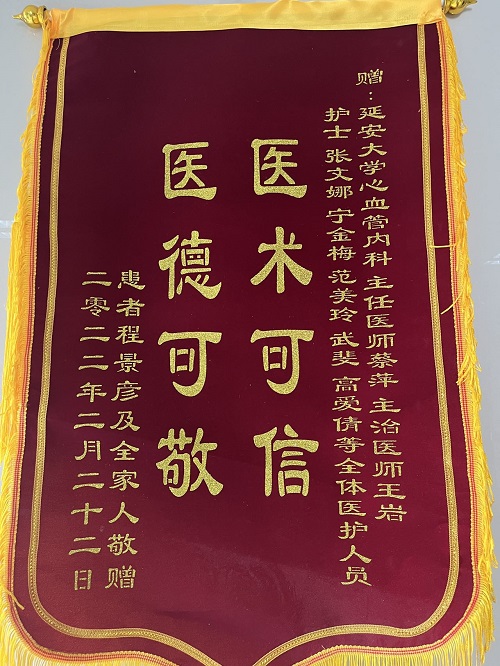 赠：延安大学心血管内科 主任医师蔡萍 主治医师王岩
护士 张文娜 宁金梅 范美玲 武斐 高爱倩等全体医护人员
医术可信
医德可敬
患者程景彦及全家人敬赠
二零二二年二月二十二日